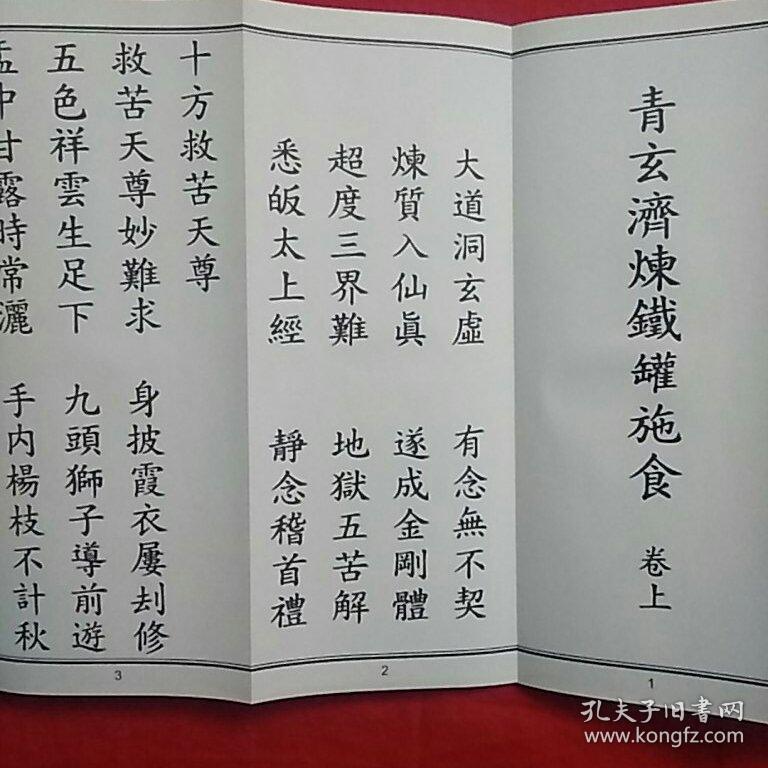 青玄濟煉鐵罐施食 卷上
1
大道洞玄虛 有念無不契
煉質入仙眞 遂成金剛體
超度三界難 地獄五苦解
悉皈太上經 靜念稽首禮
2
十方救苦天尊
救苦天尊妙難求 身披霞衣屢刦修
五色祥雲生足下 九頭獅子導前遊
盂中甘露時常灑 手內楊枝不計秋
3
孔夫子旧書网
www.kongfz.com